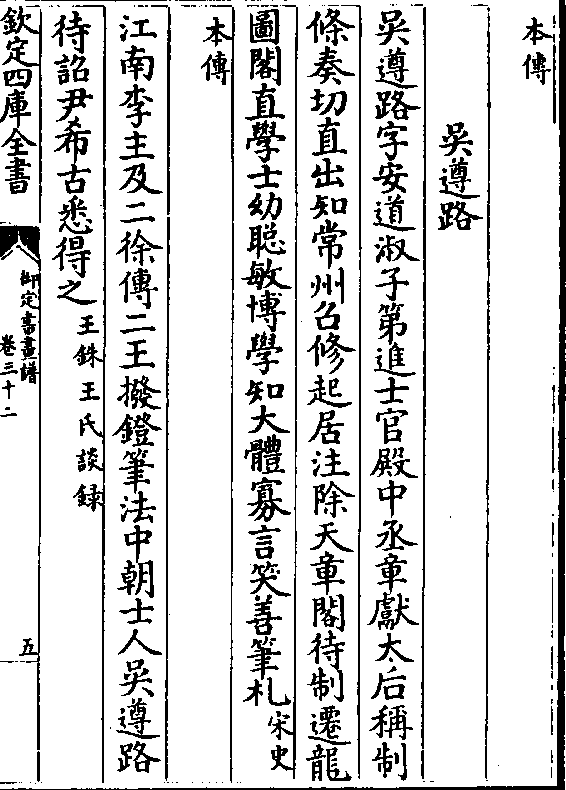 本傳
吳遵路
吳遵路字安道淑子第進士官殿中丞章獻太后稱制
條奏切直出知常州召修起居注除天章閣待制遷龍
圖閣直學士幼聰敏博學知大體寡言笑善筆札宋史
本傳
江南李主及二徐傳二王撥鐙筆法中朝士人吳遵路
待詔尹希古悉得之王銖王氏談録
欽定四庫全書
御定書畫譜
卷三十二
五